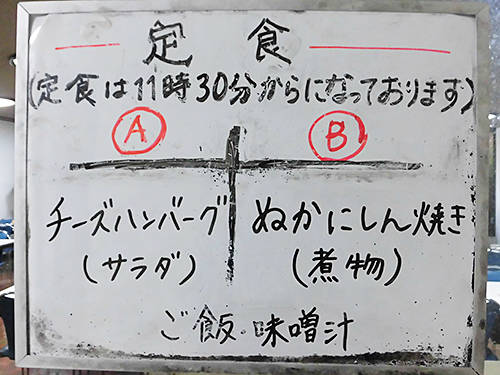 定食
(定食は11時30分からになっております)
A B
チーズハンバーグ ぬかにしん焼き
(サラダ) (煮物)
ご飯 味噌汁